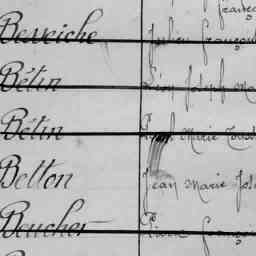 Besseiche Julien François
Bétin Léon Joseph Ma
Bétin Marie
Betton Jean Marie
Beucher Pierre François